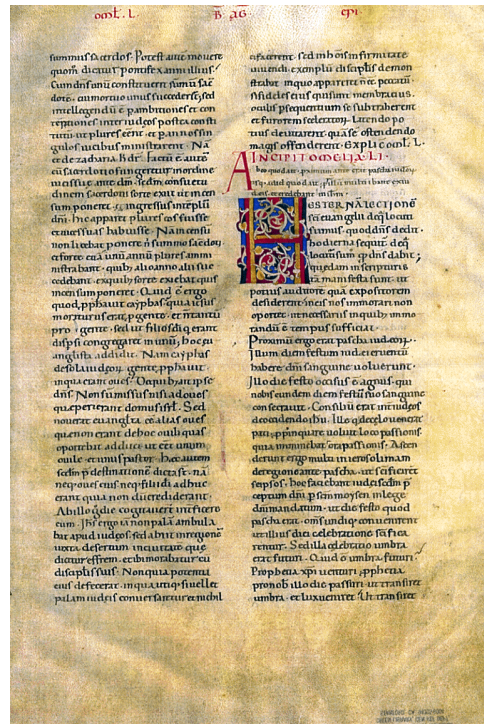 omł. L.
ꝯ̄
epi.
summus sacerdos. Potest autē mouere
quom̄ dicatur pontifex anni illius.
Cum dn̄s unū constituerit sūmū sacer
dotē. cui mortuo unus succederet. sed
intellegendū ē p ambitiones et con
tentiones inter iudeos postea consti
tutū ut plures eēnt. et p annos sin
gulos uicibus ministrarent. Nā
et de zacharia h̄ dr̄. Factū ē autē
cū sacerdotio fungeretur in ordine
uicis suę ante dm̄. scd̄m consuetu
dinem sacerdotii sorte exiit ut incen
sum poneret. ingressus in templū
dn̄i. hic apparet plures eos fuisse
et uices suas habuisse. Nam incensū
non licebat ponere n̄ summo sacerdoti
et forte etiā unū annū plures ammi
nistrabant. quib; alio anno alii suc
cedebant. ex quib; sorte exiebat qui in
censum poneret. Quid ē ergo
quod pphauit cayphas. quia ihs̄
moriturus erat p gente. et n̄ tantū
pro gente. sed ut filios di qui erant
dispsi congregaret in unū; hoc eu
anglista addidit. Nam cayphas
de sola iudeor gente pphauit.
in qua erant oues. De quib; ait ipse
dn̄s. Non sū missus nisi ad oues
quę perierant domus isrł. Sed
nouerat euanglta eē alias oues
quę non erant de hoc ouili. quas
oportebat adduci. ut eēt unum
ouile. et unus pastor. hęc autem
scd̄m pdestinationē dicta sē. nā
neq; oues eius. neq; filii di adhuc
erant qui nondū crediderant.
Ab illo g die cogitauer̄ interficere
eum. Ihs̄ ergo iā non palā ambula
bat apud iudeos. sed abiit in regionē
iuxta desertum in ciuitatē quę
dicitur effrem. et ibi morabatur cū
discipulis suis. Non quia potentia
eius defecerat. in qua utiq; si uellet
palam cum iudeis conuersaretur. et nichil
ei facerent. sed in hōis infirmitate
uiuendi exemplū disciplis demon
strabat. in quo apparet n̄ eē peccatū
si fideles eius qui sunt membra eius
oculis psequentium se subtraherent
et furorem sceleratoꝝ latendo po
tius deuitarent. quā se ostendendo
magis offenderent. Expł omł. L.
INCIPIT OMELIA. LI.
Ab hoc quod ait. proximum autem erat pascha iudeoꝝ.
usq; ad id quod ait.
HESTERNĀ LECTIONĒ
sc̄i euangelii de q̄ locuti
sumus quod dn̄s dedit.
hodierna sequitur. de q̄
locuturi sum quod dn̄s dabit;
quędam in scripturis
ita manifesta sunt. ut
potius auditorē quā expositorem
desiderent. in eis nos immorari non
oportet. ut necessariis in quib; immo
randū ē tempus sufficiat.
Proximū ergo erat pascha iudeoꝝ.
Illum diem festum iudei cruentū
habere dn̄i sanguine uoluerunt.
Illo die festo occisus ē agnus. qui
nobis eundem diem festū suo sanguine
consecrauit. Consiliū erat int̄ iudeos
de occidendo ihū. Ille qui de cęlo uenerat
pati. ppinquare uoluit loco passionis
quia imminebat hora passionis. Ascen
derunt ergo multi in ierosolimam
de regione ante pascha. ut scificarent
seipsos. hoc faciebant iudei scd̄m p
ceptum dn̄i p sc̄m moysen in lege
dn̄i mandatum. ut die festo quod
pascha erat. oms̄ undiq; conuenirent
et illius diei celebratione sc̄ifica
rentur. Sed illa celebratio umbra
erat futuri. Quid ē umbra futuri.
Prophetia xp̄i uenturi. pphetia
pro nob illo die passuri. ut transiret
umbra. et lux ueniret. Ut transiret